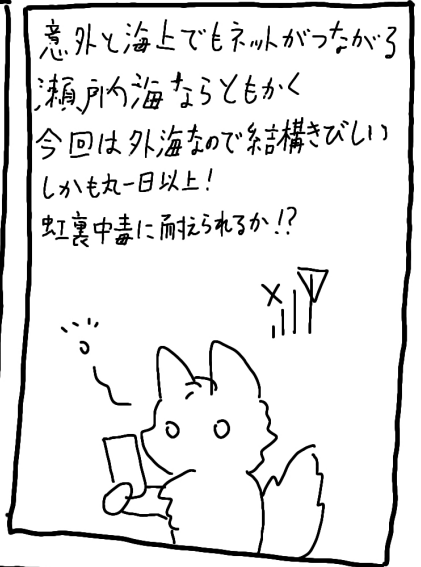 意外と海上でもネットがつながる
瀬戸内海ならともかく
今回は外海なので結構きびしい
しかも丸一日以上!
虹裏中毒に耐えられるか!?